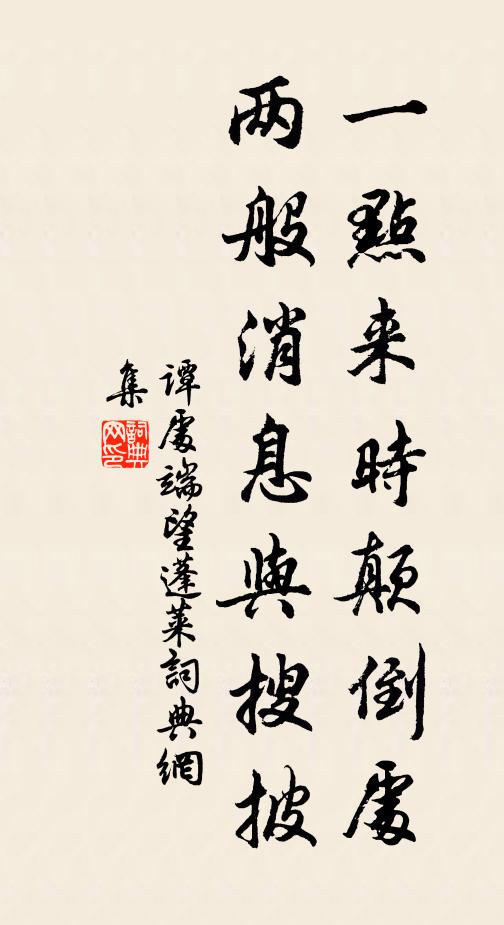 一點来時顛倒處
两般消息與搜披
譚處端望蓬萊詞典網
集
詞典网印